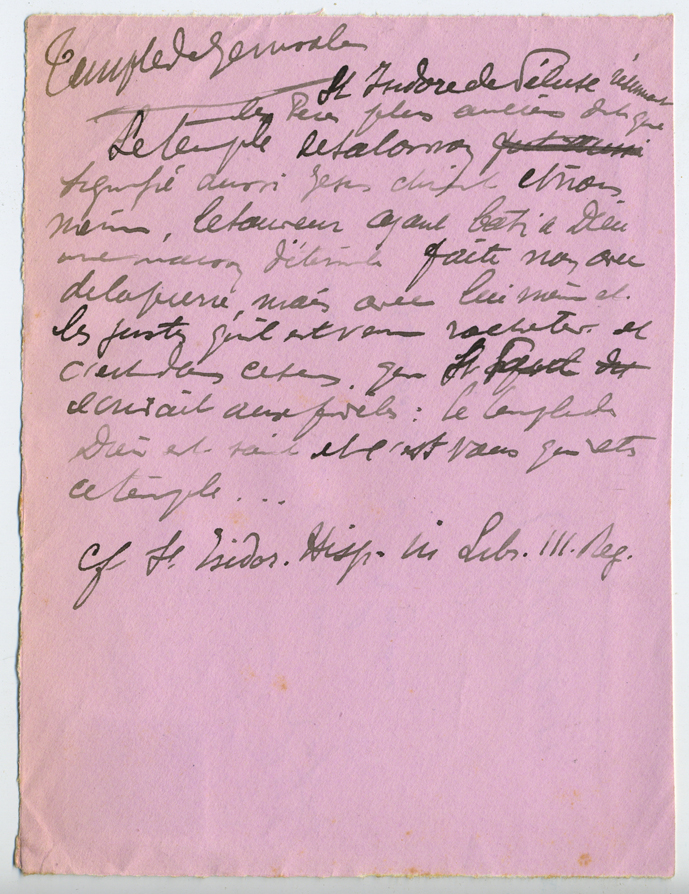 Temple de Jerusalem
St Isidore de Péluse résumant
les Pères plus anciens dit que
Le temple de Salomon
signifie aussi Jesus Christ et nous
mêmes, le sauveur ayant bati a Dieu
une maison faite non avec
de la pierre, mais avec lui même et
les justes qu'il est venu racheter et
c'est dans ce sens que St Paul
ecrivait aux fidèles : le temple de
Dieu est saint et c'est vous qui êtes
ce temple . . .
cf St Isidor. Hisp. in Libr. III. Reg.